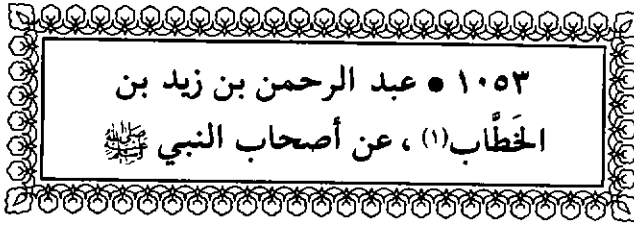 ١٠٥٣ • عبد الرحمن بن زيد بن
الخَطَّاب(١) ، عن أصحاب النبي ﷺ